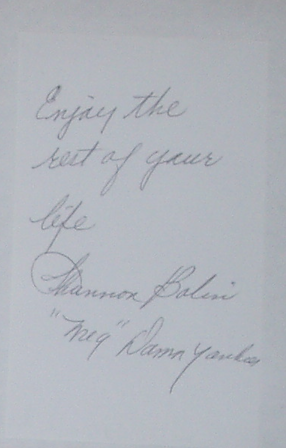 Enjoy the
rest of your
life
Shannon Bolin
"Meg" Damn Yankees